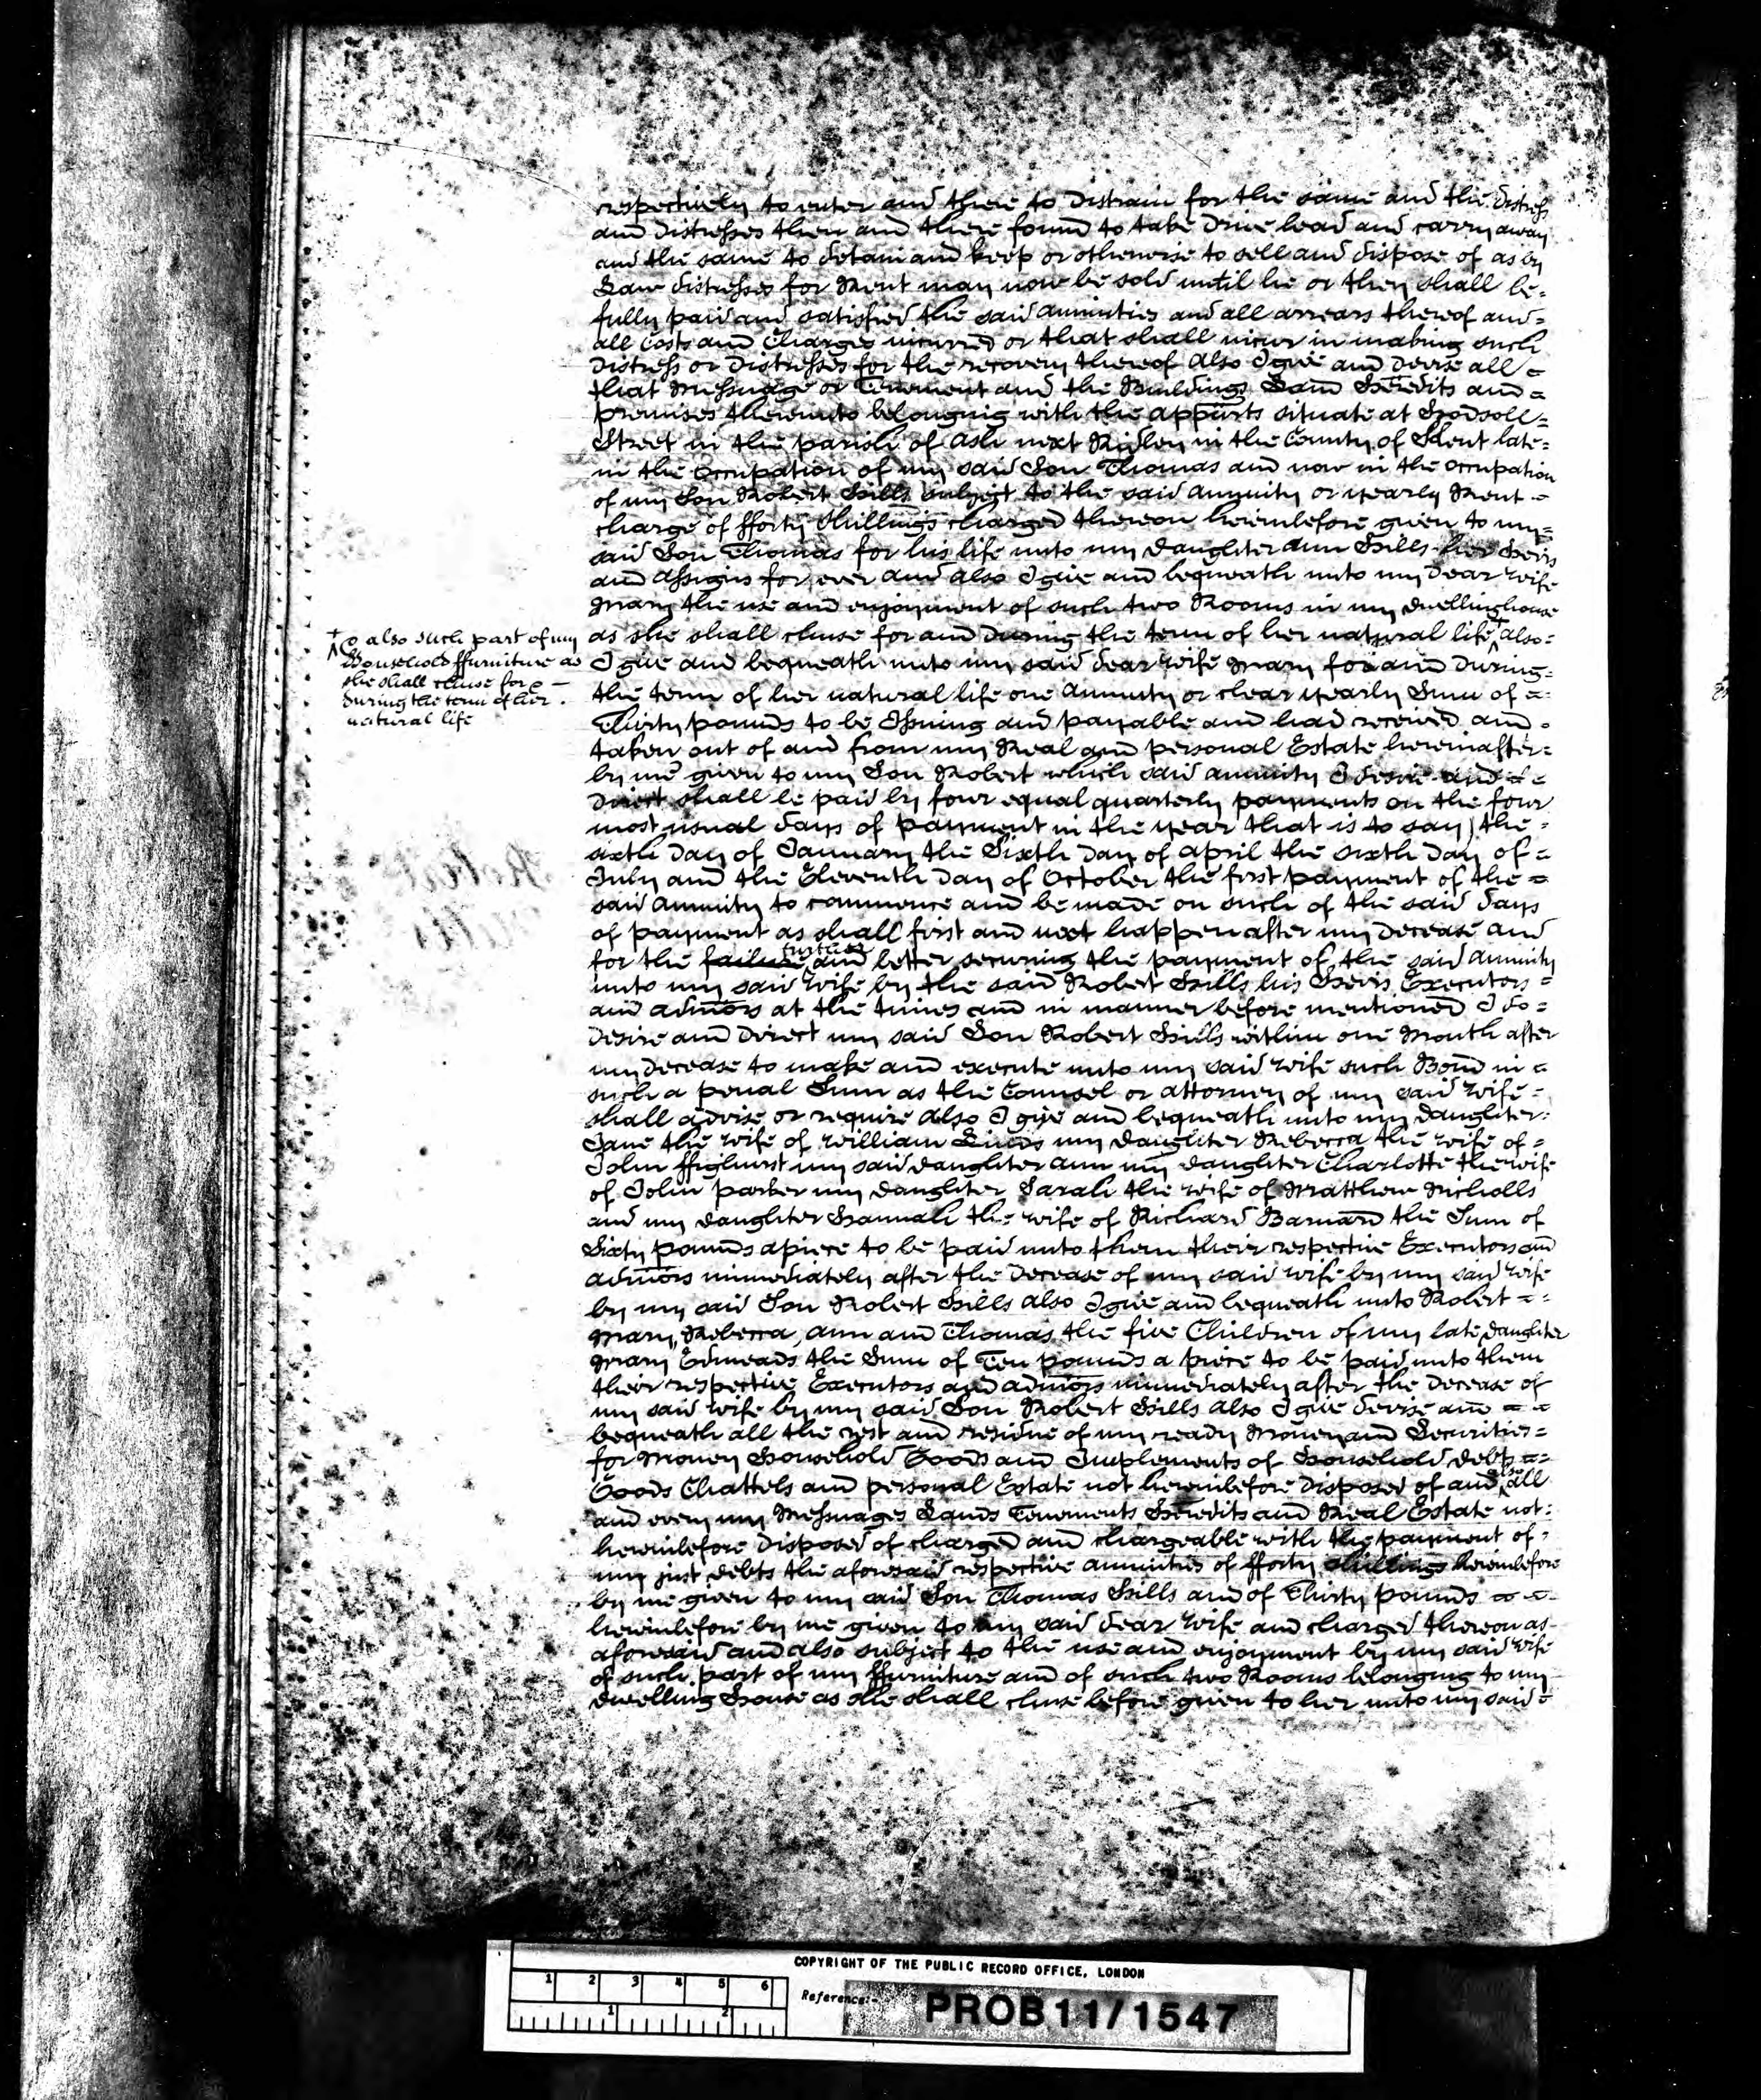 respectively to enter and there to Distrain for the same and the Distress
and Distresses then and there found to take Drive lead and carry away
and the same to detain and keep or otherwise to sell and dispose of as by
Law distresses for Rent may now be sold until he or they shall be
fully paid and satisfied the said annuities and all arrears thereof and
all Costs and Charges incurred or that shall incur in making such
Distress or Distresses for the recovery thereof also I give and Devise all
that Messuage or Tenement and the Buildings Land Heredits and
premises thereunto belonging with the appurts situate at Hodsoll
Street in the parish of Ash next Ridley in the County of Kent late
in the Occupation of my said Son Thomas and now in the occupation
of my Son Robert Hills subject to the said annuity or yearly Rent
charge of fforty Shillings charged thereon hereinbefore given to my
said Son Thomas for his life unto my Daughter Ann Hills her Heirs
and Assigns for ever and also I give and bequeath unto my Dear wife
Mary the use and enjoyment of such two Rooms in my dwellinghouse
as she shall chuse for and During the term of her natural life + also
+ & also such part of my
Household ffurniture as
she shall chuse for &
during the term of her
natural life
I give and bequeath unto my said dear wife Mary for and During
the term of her natural life one Annuity or clear yearly Sum of
Thirty pounds to be Issuing and payable and had received and
taken out of and from my Real and personal Estate hereinafter
by me given to my Son Robert which said annuity I desire and
Direct shall be paid by four equal quarterly payments on the four
most usual days of payment in the year that is to say) the
sixth Day of January the Sixth Day of april the sixth Day of
July and the Eleventh Day of October the first payment of the
said annuity to commence and be made on such of the said days
of payment as shall first and next happen after my Decease and
further
for the failure and better securing the payment of the said annuity
unto my said wife by the said Robert Hills his Heirs Executors
and admors at the times and in manner before mentioned I do
Desire and Direct my said Son Robert Hills within one Month after
my Decease to make and execute unto my said wife such Bond in
such a penal Sum as the Counsel or attorney of my said wife
shall advise or require also I give and bequeath unto my Daughter
Jane the wife of William my Daughter Rebecca the wife of
John ffighurst my said daughter ann my Daughter Charlotte the wife
of John parker my Daughter Sarah the wife of Matthew Nicholls
and my Daughter Hannah the wife of Richard Barnard the Sum of
Sixty pounds apiece to be paid unto them their respective Executors and
admors immediately after the Decease of my said wife by my said wife
by my said Son Robert Hills also I give and bequeath unto Robert
Mary, Rebecca, ann and Thomas the five Children of my late Daughter
Mary Edmeads the Sum of Ten pounds a piece to be paid unto them
their respective Executors and admors immediately after the Decease of
my said wife by my said Son Robert Hills also I give devise and
bequeath all the rest and residue of my ready Money and Securities
for Money Household Goods and Implements of Household Debts
Goods Chattels and personal Estate not hereinbefore disposed of and also all
and every my Messuages Lands Tenements Heredits and Real Estate not
hereinbefore Disposed of charged and chargeable with the payment of
my just debts the aforesaid respective annuities of fforty shillings hereinbefore
by me given to my said Son Thomas Hills and of Thirty pounds
hereinbefore by me given to my said dear wife and charged thereon as
aforesaid and also subject to the use and enjoyment by my said wife
of such part of my ffurniture and of such two Rooms belonging to my
dwelling House as she shall chuse before given to her unto my said
COPYRIGHT OF THE PUBLIC RECORD OFFICE, LONDON
1 2 3 4 5 6
Reference:-
PROB 11/1547
1 2